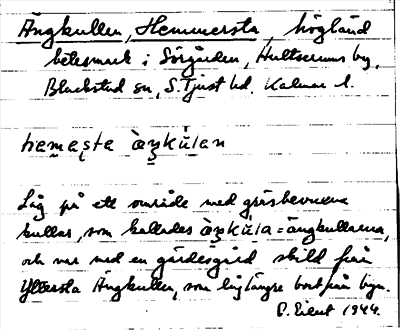 Ängkullen, Hemmersta, högländ
betesmark i Sörgården, Hultserums by,
Blackstad sn, S. Tjust hd. Kalmar l.
hemesta àŋkùlan
Låg på ett område med gräsbevuxna
kullar, som kallades àŋkùla = ängkullarna,
och var med en gärdesgård skild från
Yttersta Ängkullen, som låg längre bort från byn.
1944.